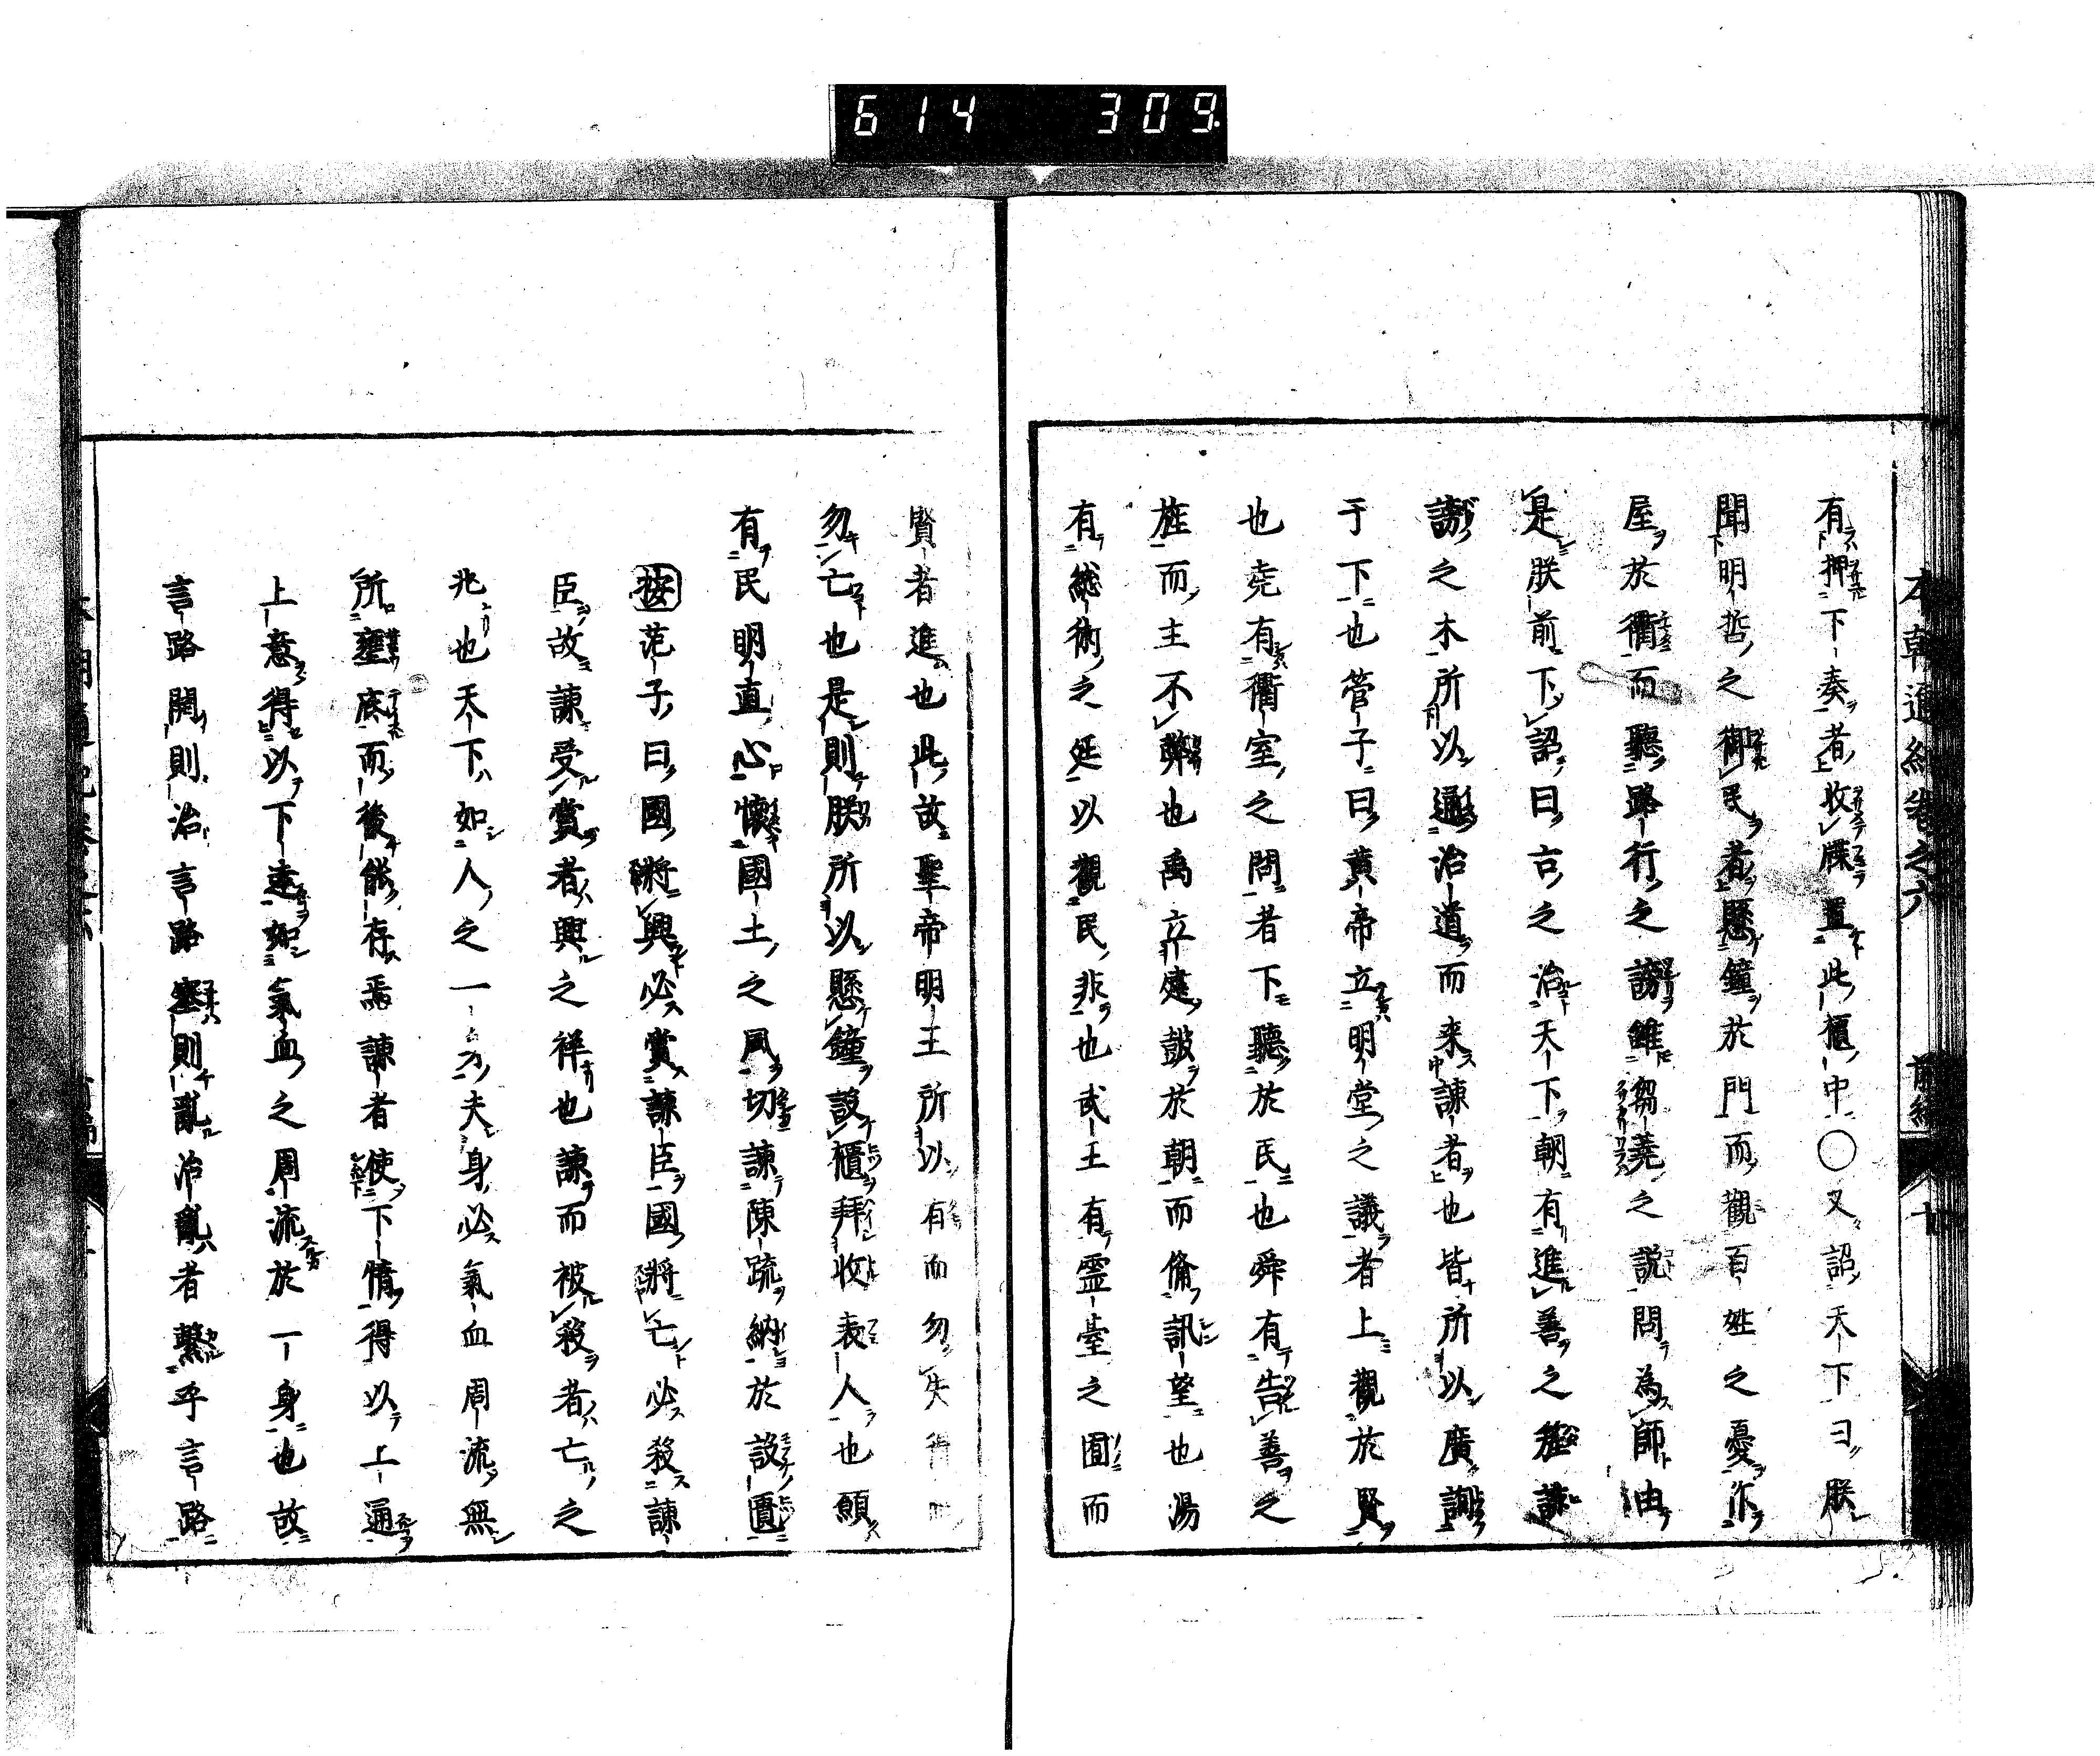 614 309
本朝通紀巻之六 前編 十
有押下奏者収牒置此櫃中〇又詔天下曰朕
聞明哲之御民者懸鐘於門而觀百姓之憂作
屋於衢而聽路行之謗雖蒭蕘之説問為師由
是朕前下詔曰古之治天下朝有進善之旌誹
謗之木所以通治道而来諌者也皆所以廣詢
于下也管子曰黄帝立明堂之議者上觀於賢
也堯有衢室之問者下聽於民也舜有告善之
旌而主不蔽也禹立建鼓於朝而備訊望也湯
有總術之廷以觀民非也武王有霊臺之囿而
賢者進也此故聖帝明王所以有而勿失得而
勿亡也是則朕所以懸鐘設櫃拜收表人也願
有民明直心懷國土之風切諌陳疏納於設匱
按范子曰國將興必賞諌臣國將亡必殺諌
臣故諌受賞者興之祥也諌而被殺者亡之
兆也天下如人之一身夫身必氣血周流無
所壅底而後能存焉諌者使下情得以上通
上意得以下達如氣血之周流於一身也故
言路開則治言路塞則亂治亂者繫乎言路